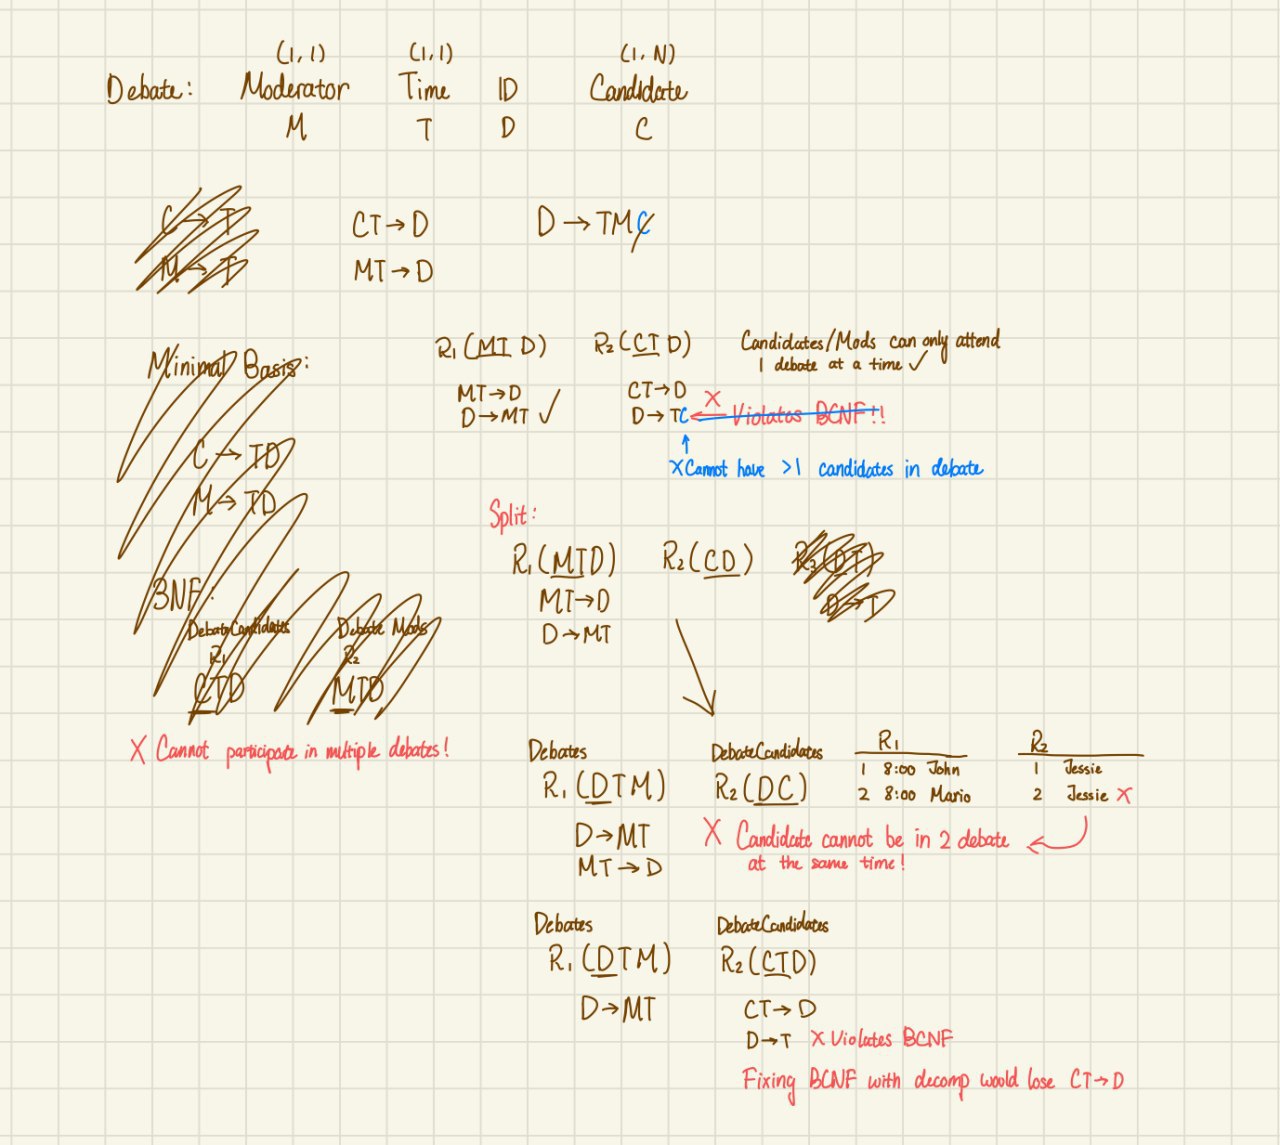 (1,1) (1,1) (1,N)
Debate: Moderator Time ID Candidate
M T D C
C → T
M → T
CT → D
MT → D
D → TMC
Minimal Basis:
C → TD
M → TD
BNF:
DebateCandidates Debate Mods
R₁ R₂
CTD MTD
X Cannot participate in multiple debates!
R₁(MT D) R₂(CT D)
MT → D
D → MT ✓
CT → D
D → TC ← X Violates BCNF!!
↑
X Cannot have >1 candidates in debate
Candidates/Mods can only attend
1 debate at a time ✓
Split:
R₁(MTD) R₂(CD) R₃(DT)
MT → D D → T
D → MT
Debates DebateCandidates
R₁(DTM) R₂(DC)
D → MT
MT → D
R₁
1 8:00 John
2 8:00 Mario
R₂
1 Jessie
2 Jessie X
X Candidate cannot be in 2 debate
at the same time!
Debates DebateCandidates
R₁(DTM) R₂(CTD)
D → MT CT → D
D → T X Violates BCNF
Fixing BCNF with decomp would lose CT → D